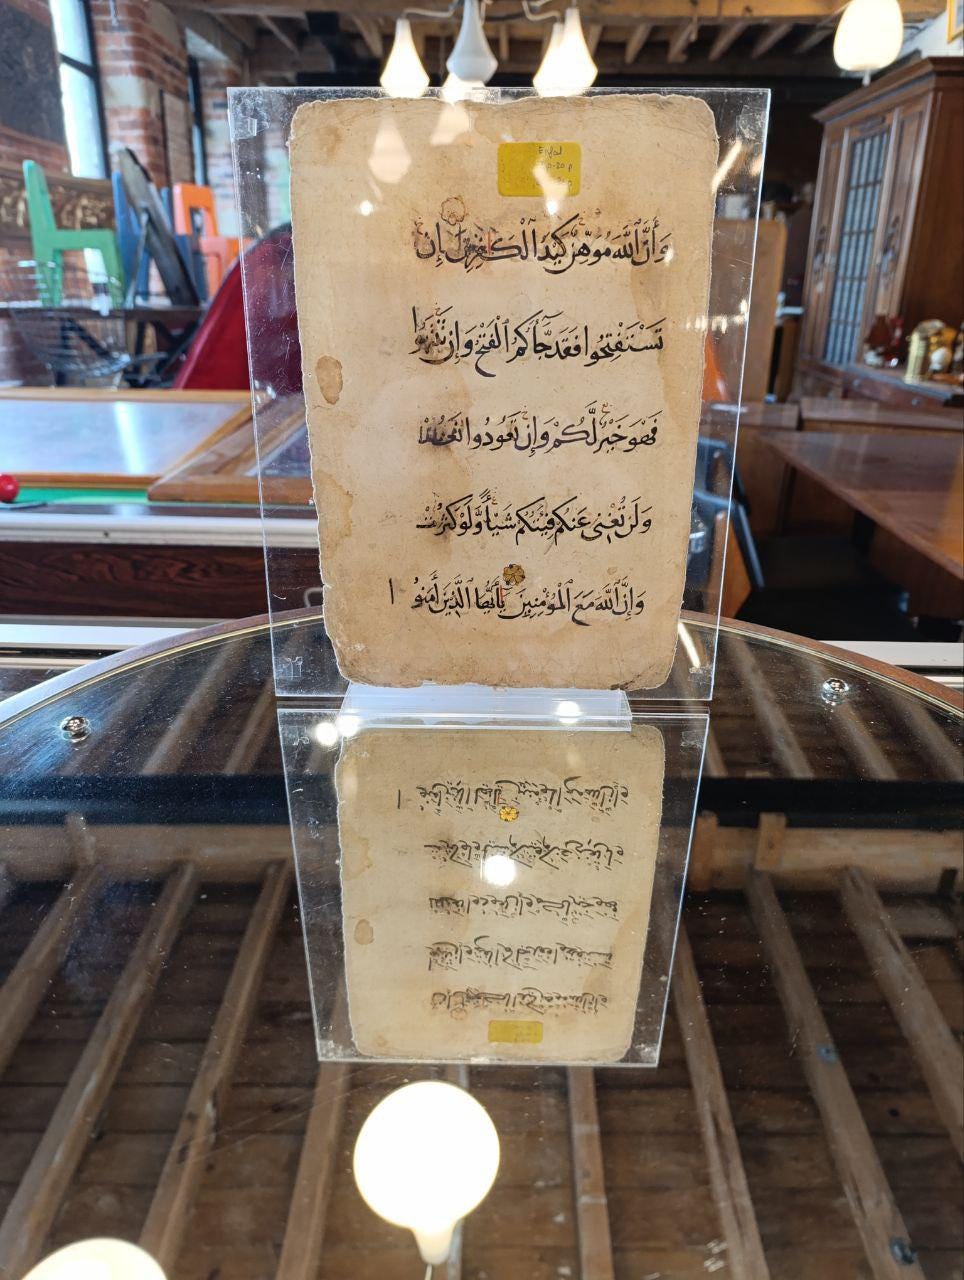 وَأَنَّ ٱللَّهَ مُوَهِّنٌ كَيْدَ ٱلْكَٰفِرِينَ إِن
تَسْتَفْتِحُوا فَقَدْ جَآءَكُمُ ٱلْفَتْحُ وَإِن تَنتَهُوا
فَهُوَ خَيْرٌ لَّكُمْ وَإِن تَعُودُوا نَعُدْ
وَلَن تُغْنِيَ عَنكُمْ فِئَتُكُمْ شَيْـًٔا وَّلَوْ كَثُرَتْ
وَإِنَّ ٱللَّهَ مَعَ ٱلْمُؤْمِنِينَ يَٰٓأَيُّهَا ٱلَّذِينَ ءَامَنُوا